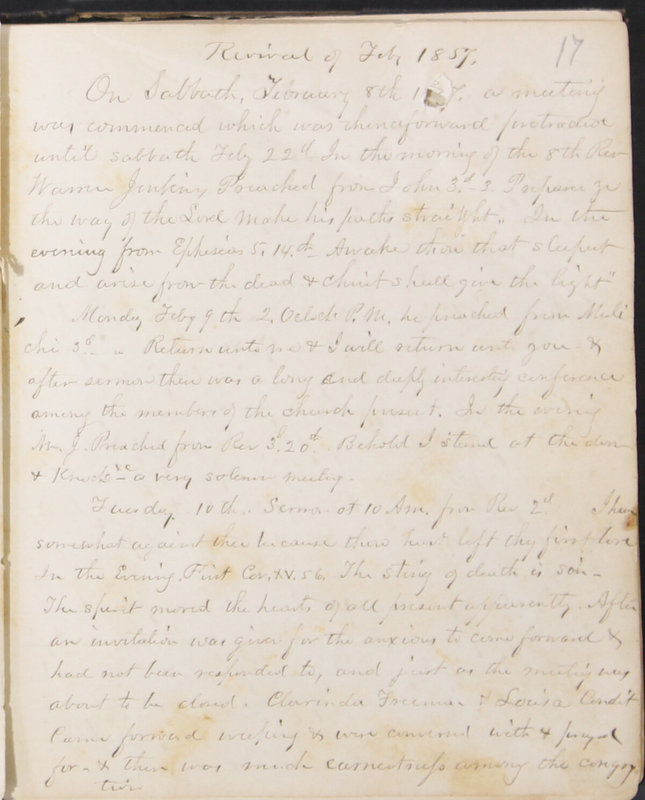 17
Revival of Feby 1857.
On Sabbath, February 8th 1857. a meeting
was commenced which was thenceforward protracted
until sabbath Feby 22d In the morning of the 8th Rev
Warren Jenkins Preached from John 3d-3. Prepare ye
the way of the Lord make his paths straight" In the
evening from Ephesians 5, 14th Awake thou that sleepest
and arise from the dead & christ shall give thee light"
Monday Feby 9th 2, Oclock P.M. he preached from Mala
chi 3d " Return unto me & I will return unto you - &
after sermon there was a long and deeply interesting conference
among the members of the church present. In the evening
Mr. J. Preached from Rev 3d. 20th. Behold I stand at the door
& Knock &c - a very solemn meeting.
Tuesday. 10th. Sermon at 10 Am. from Rev 2d I have
somewhat against thee because thou hast left thy first love
In the Evening. First Cor. XV. 56, The sting of death is sin -
The spirit moved the hearts of all present apparently. After
an invitation was given for the anxious to come forward &
had not been responded to, and just as the meeting was
about to be closed. Clarinda Freeman & Louisa Condit
Came forward weeping & were conversed with & prayed
for - & there was much earnestness among the congrega
tion